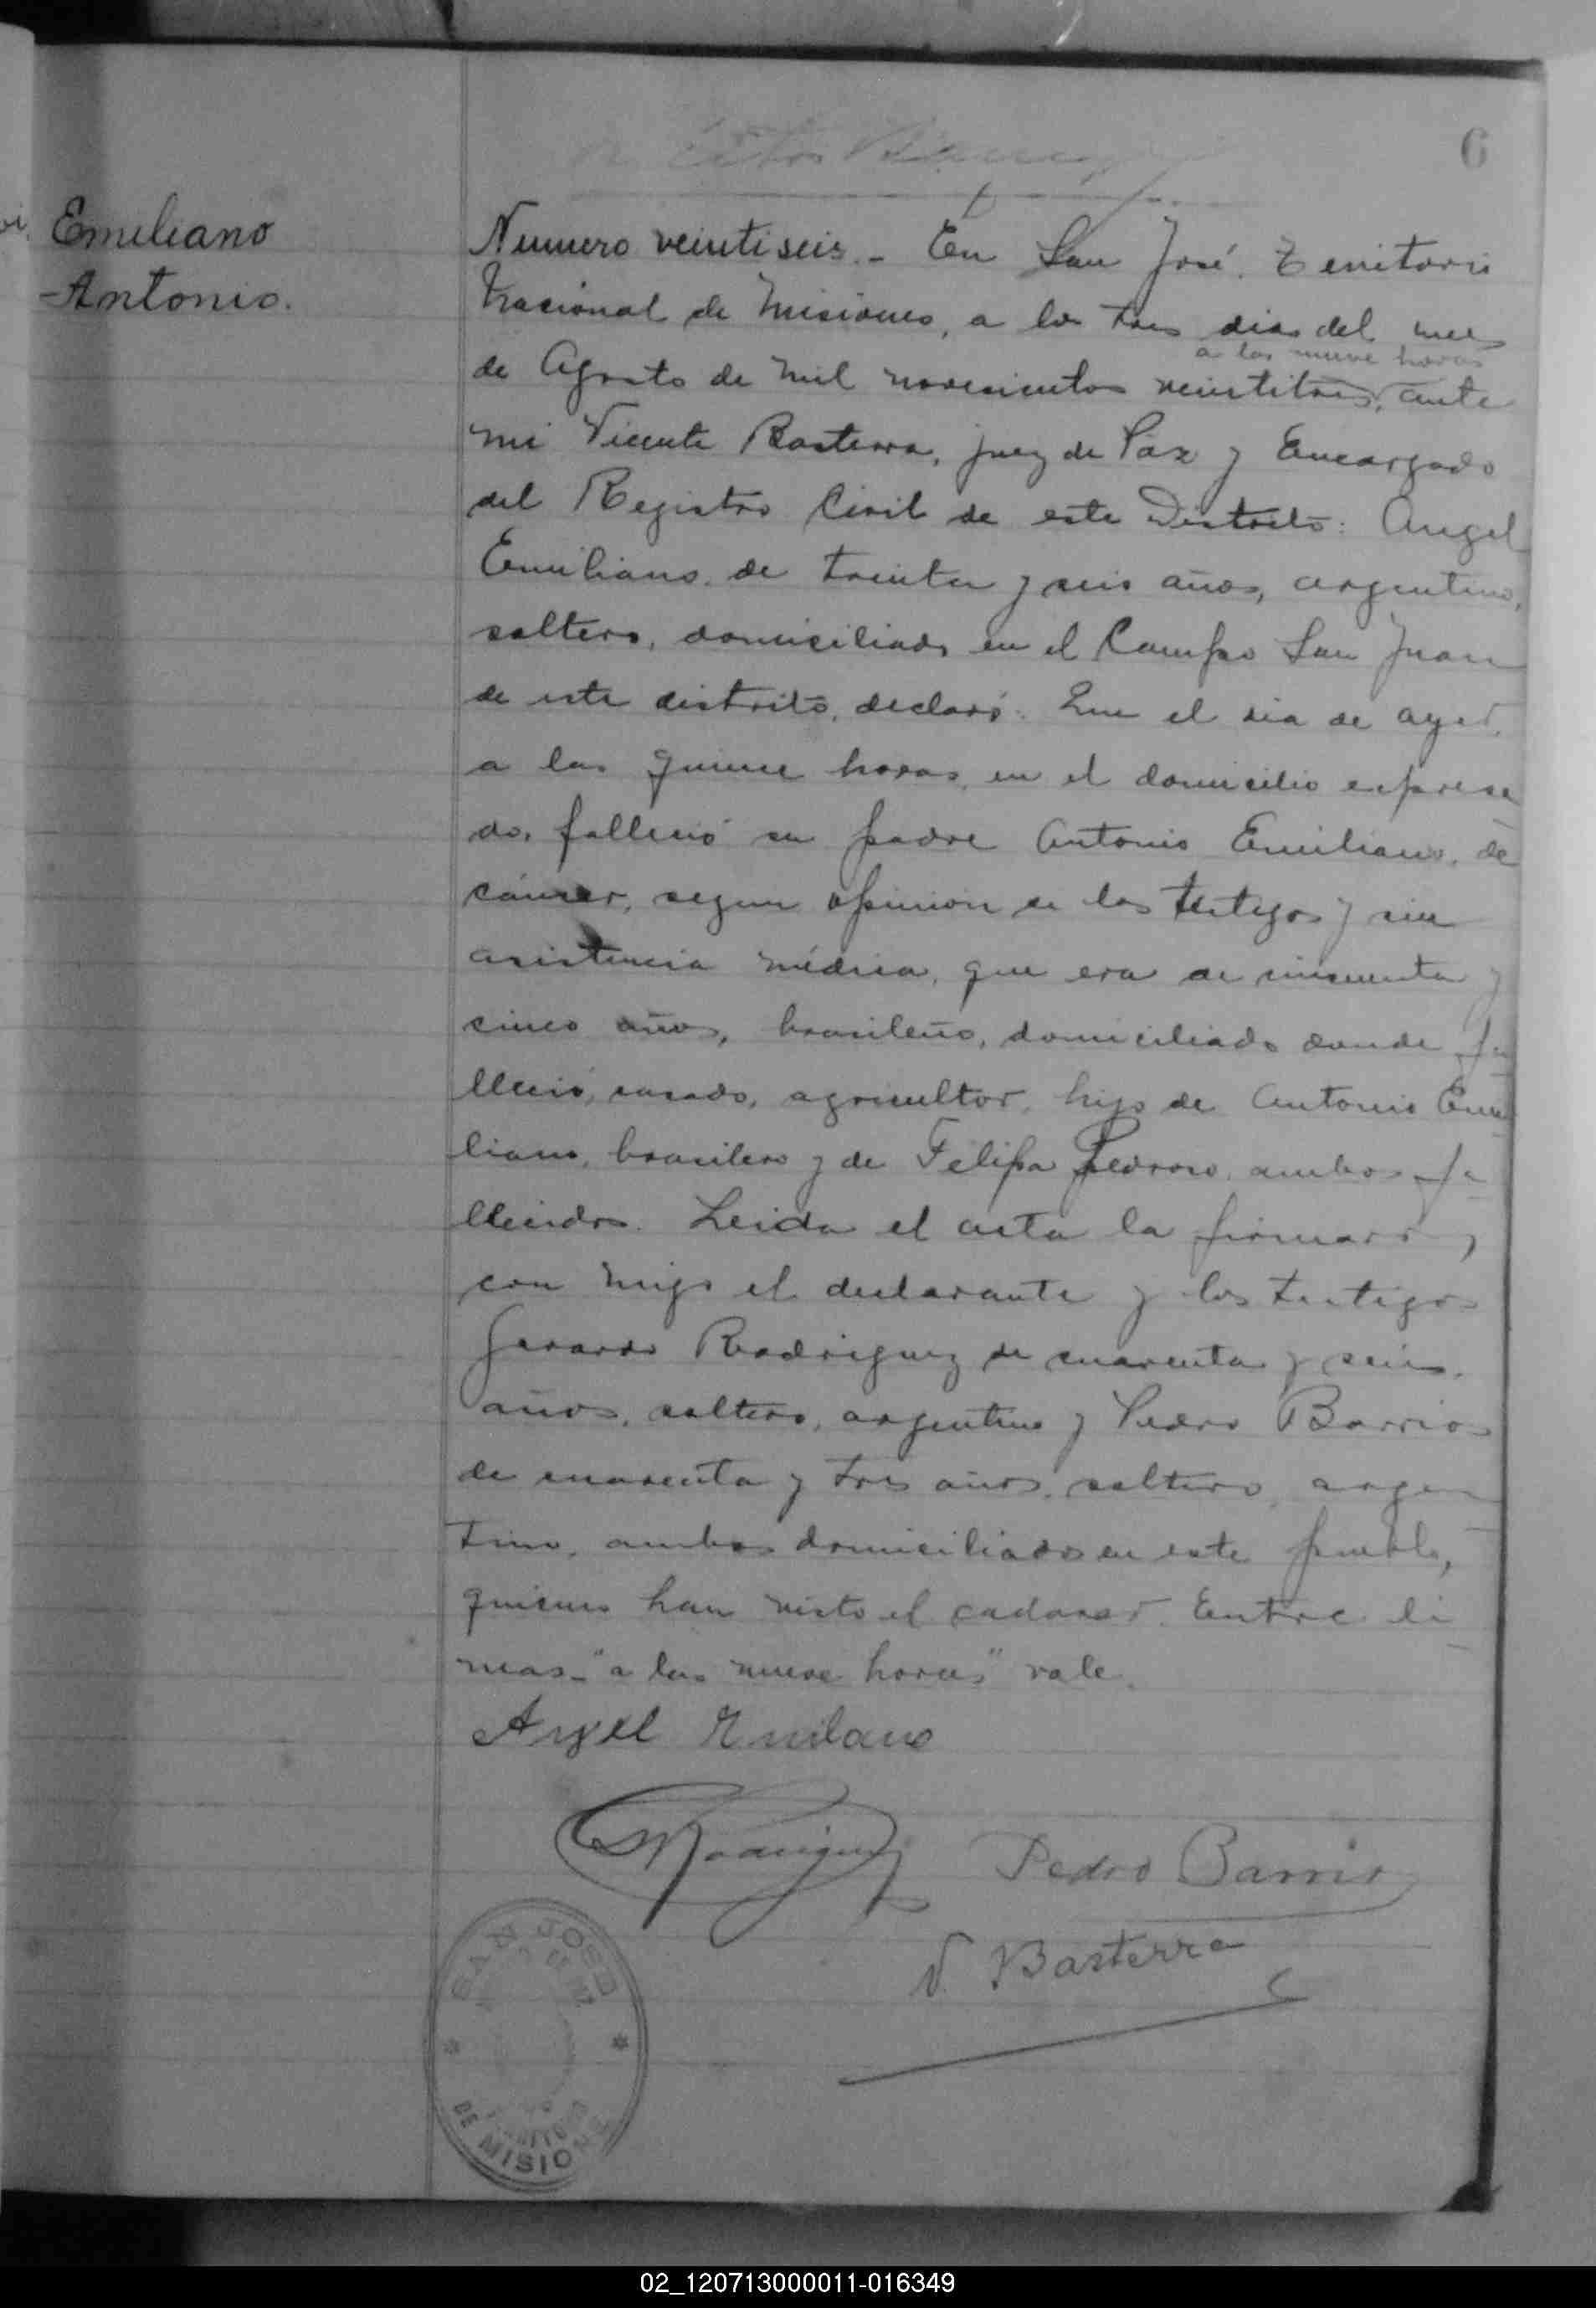 6
Emiliano
Antonio.
Numero veintiseis.- En San José, Territorio
Nacional de Misiones, a los tres dias del mes
a las nueve horas
de Agosto de mil novecientos veintitres, ante
mi Vicente Basterra, juez de Paz y Encargado
del Registro Civil de este Distrito: Angel
Emiliano, de treinta y seis años, argentino,
soltero, domiciliado en el Campo San Juan
de este distrito, declaró: Que el dia de ayer,
a las quince horas, en el domicilio expresa
do, falleció su padre Antonio Emiliano, de
cáncer, segun opinion de los testigos y sin
asistencia médica, que era de cincuenta y
cinco años, brasileño, domiciliado donde fa
lleció, casado, agricultor, hijo de Antonio Emi
liano, brasilero y de Felipa Pedroso, ambos fa
llecidos. Leida el acta la firmaron
con migo el declarante y los testigos
Gerardo Rodriguez de cuarenta y seis
años, soltero, argentino y Pedro Barrios
de cuarenta y tres años, soltero, argen
tino, ambos domiciliados en este pueblo,
quienes han visto el cadaver. Entre li
neas-"a las nueve horas" vale.
Angel Emilano
GRodriguez Pedro Barrios
V. Basterra
SAN JOSÉ
DE MISIONES
02_120713000011-016349